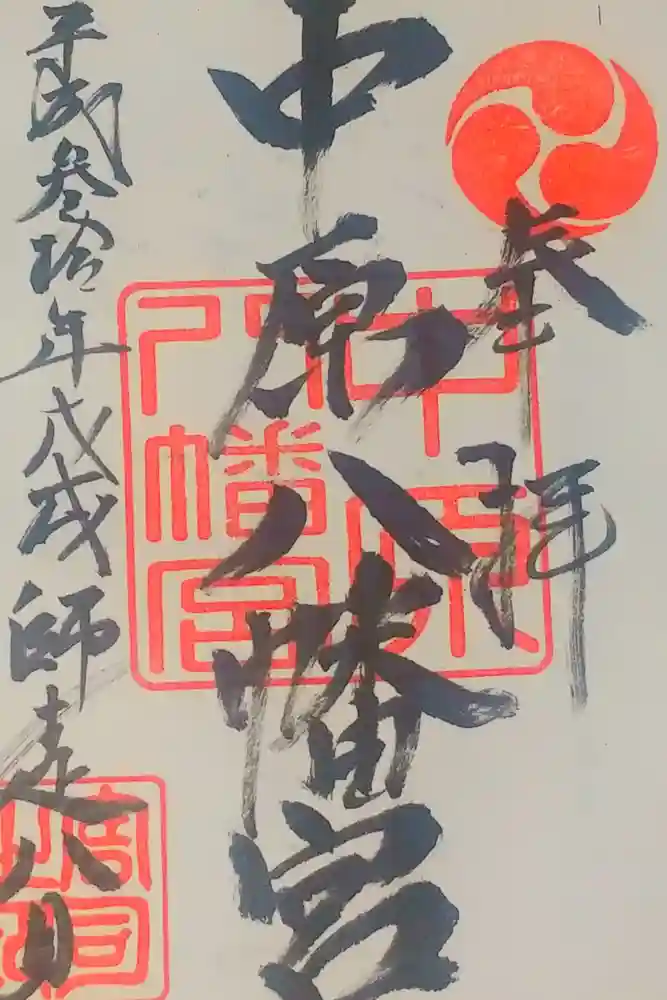 奉拝
中原八幡宮
中原
八幡宮
平成叁拾年戊戌師走八日